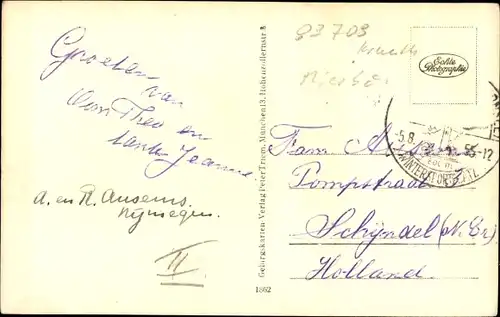 Groeten van
Oom Theo en
tante Jeanne
A. en R. Ansems.
Nijmegen.
II
Gebirgskarten-Verlag Peter Triem, München 13, Hohenzollernstr.
1862
83703
Echte
Photographie
-5.8. 56-12
WINTERSPORTPLATZ
Fam. A.
Pompstraat
Schijndel (N.Br)
Holland.